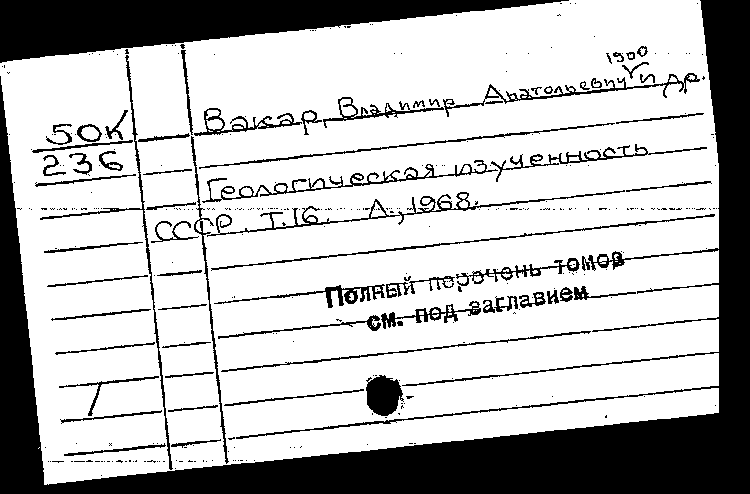 1900
50К Вакар, Владимир Анатольевич и др.
236
Геологическая изученность
СССР. Т.16. Л., 1968.
Полный перечень томов
см. под заглавием
/